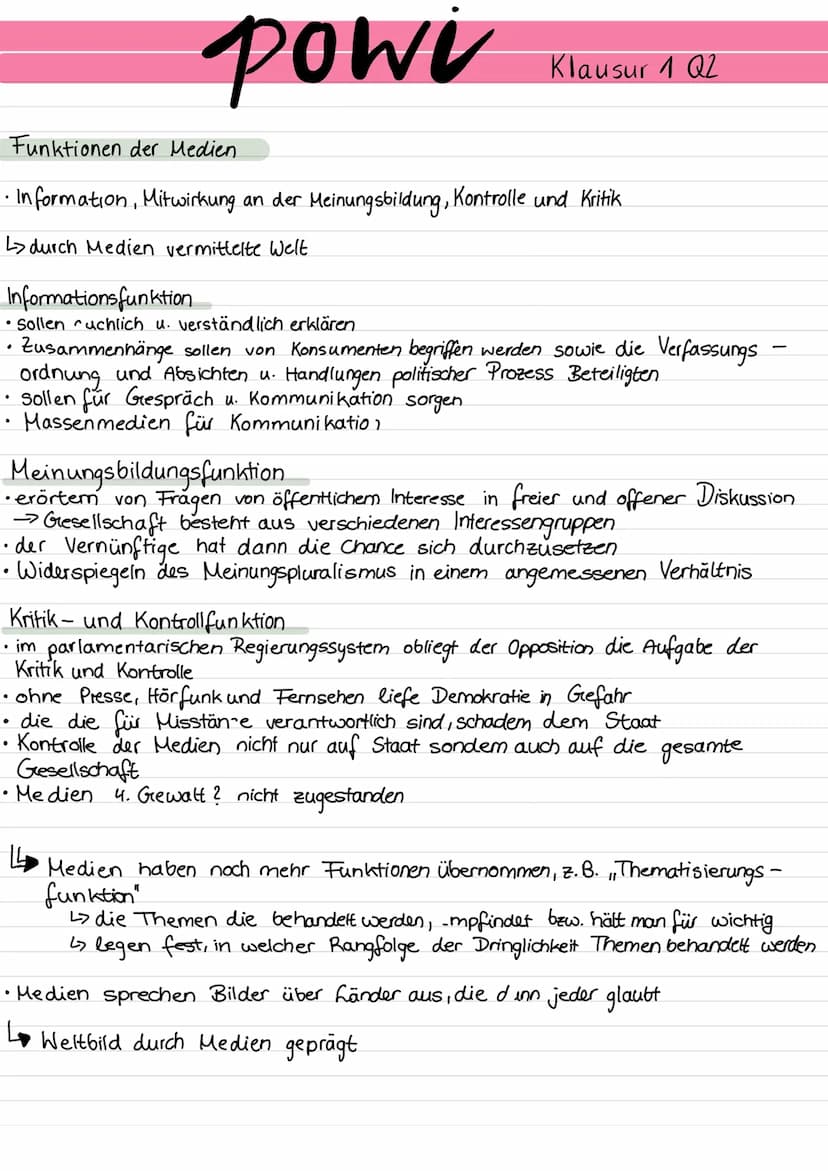 powi
Klausur 1 Q2
Funktionen der Medien
· Information, Mitwirkung an der Meinungsbildung, Kontrolle und Kritik
↳ durch Medien vermittelte Welt
Informationsfunktion
· sollen u. verständlich erklären
· Zusammenhänge sollen von Konsumenten begriffen werden sowie die Verfassungs -
ordnung und Absichten u. Handlungen politischer Prozess Beteiligten
· sollen für Gespräch u. Kommunikation sorgen
· Massenmedien für Kommunikation
Meinungsbildungsfunktion
· erörtern von Fragen von öffentlichem Interesse in freier und offener Diskussion
→ Gesellschaft besteht aus verschiedenen Interessengruppen
· der Vernünftige hat dann die Chance sich durchzusetzen
· Widerspiegeln des Meinungspluralismus in einem angemessenen Verhältnis
Kritik- und Kontrollfunktion
· im parlamentarischen Regierungssystem obliegt der Opposition die Aufgabe der
Kritik und Kontrolle
· ohne Presse, Hörfunk und Fernsehen liefe Demokratie in Gefahr
· die die für Misstände verantwortlich sind, schadem dem Staat
· Kontrolle der Medien nicht nur auf Staat sondern auch auf die gesamte
Gesellschaft
· Medien 4. Gewalt? nicht zugestanden
↳ Medien haben noch mehr Funktionen übernommen, z.B. „Thematisierungs -
funktion"
↳ die Themen die behandelt werden, empfindet bzw. hält man für wichtig
↳ legen fest, in welcher Rangfolge der Dringlichkeit Themen behandelt werden
· Medien sprechen Bilder über Länder aus, die dann jeder glaubt
↳ Weltbild durch Medien geprägt